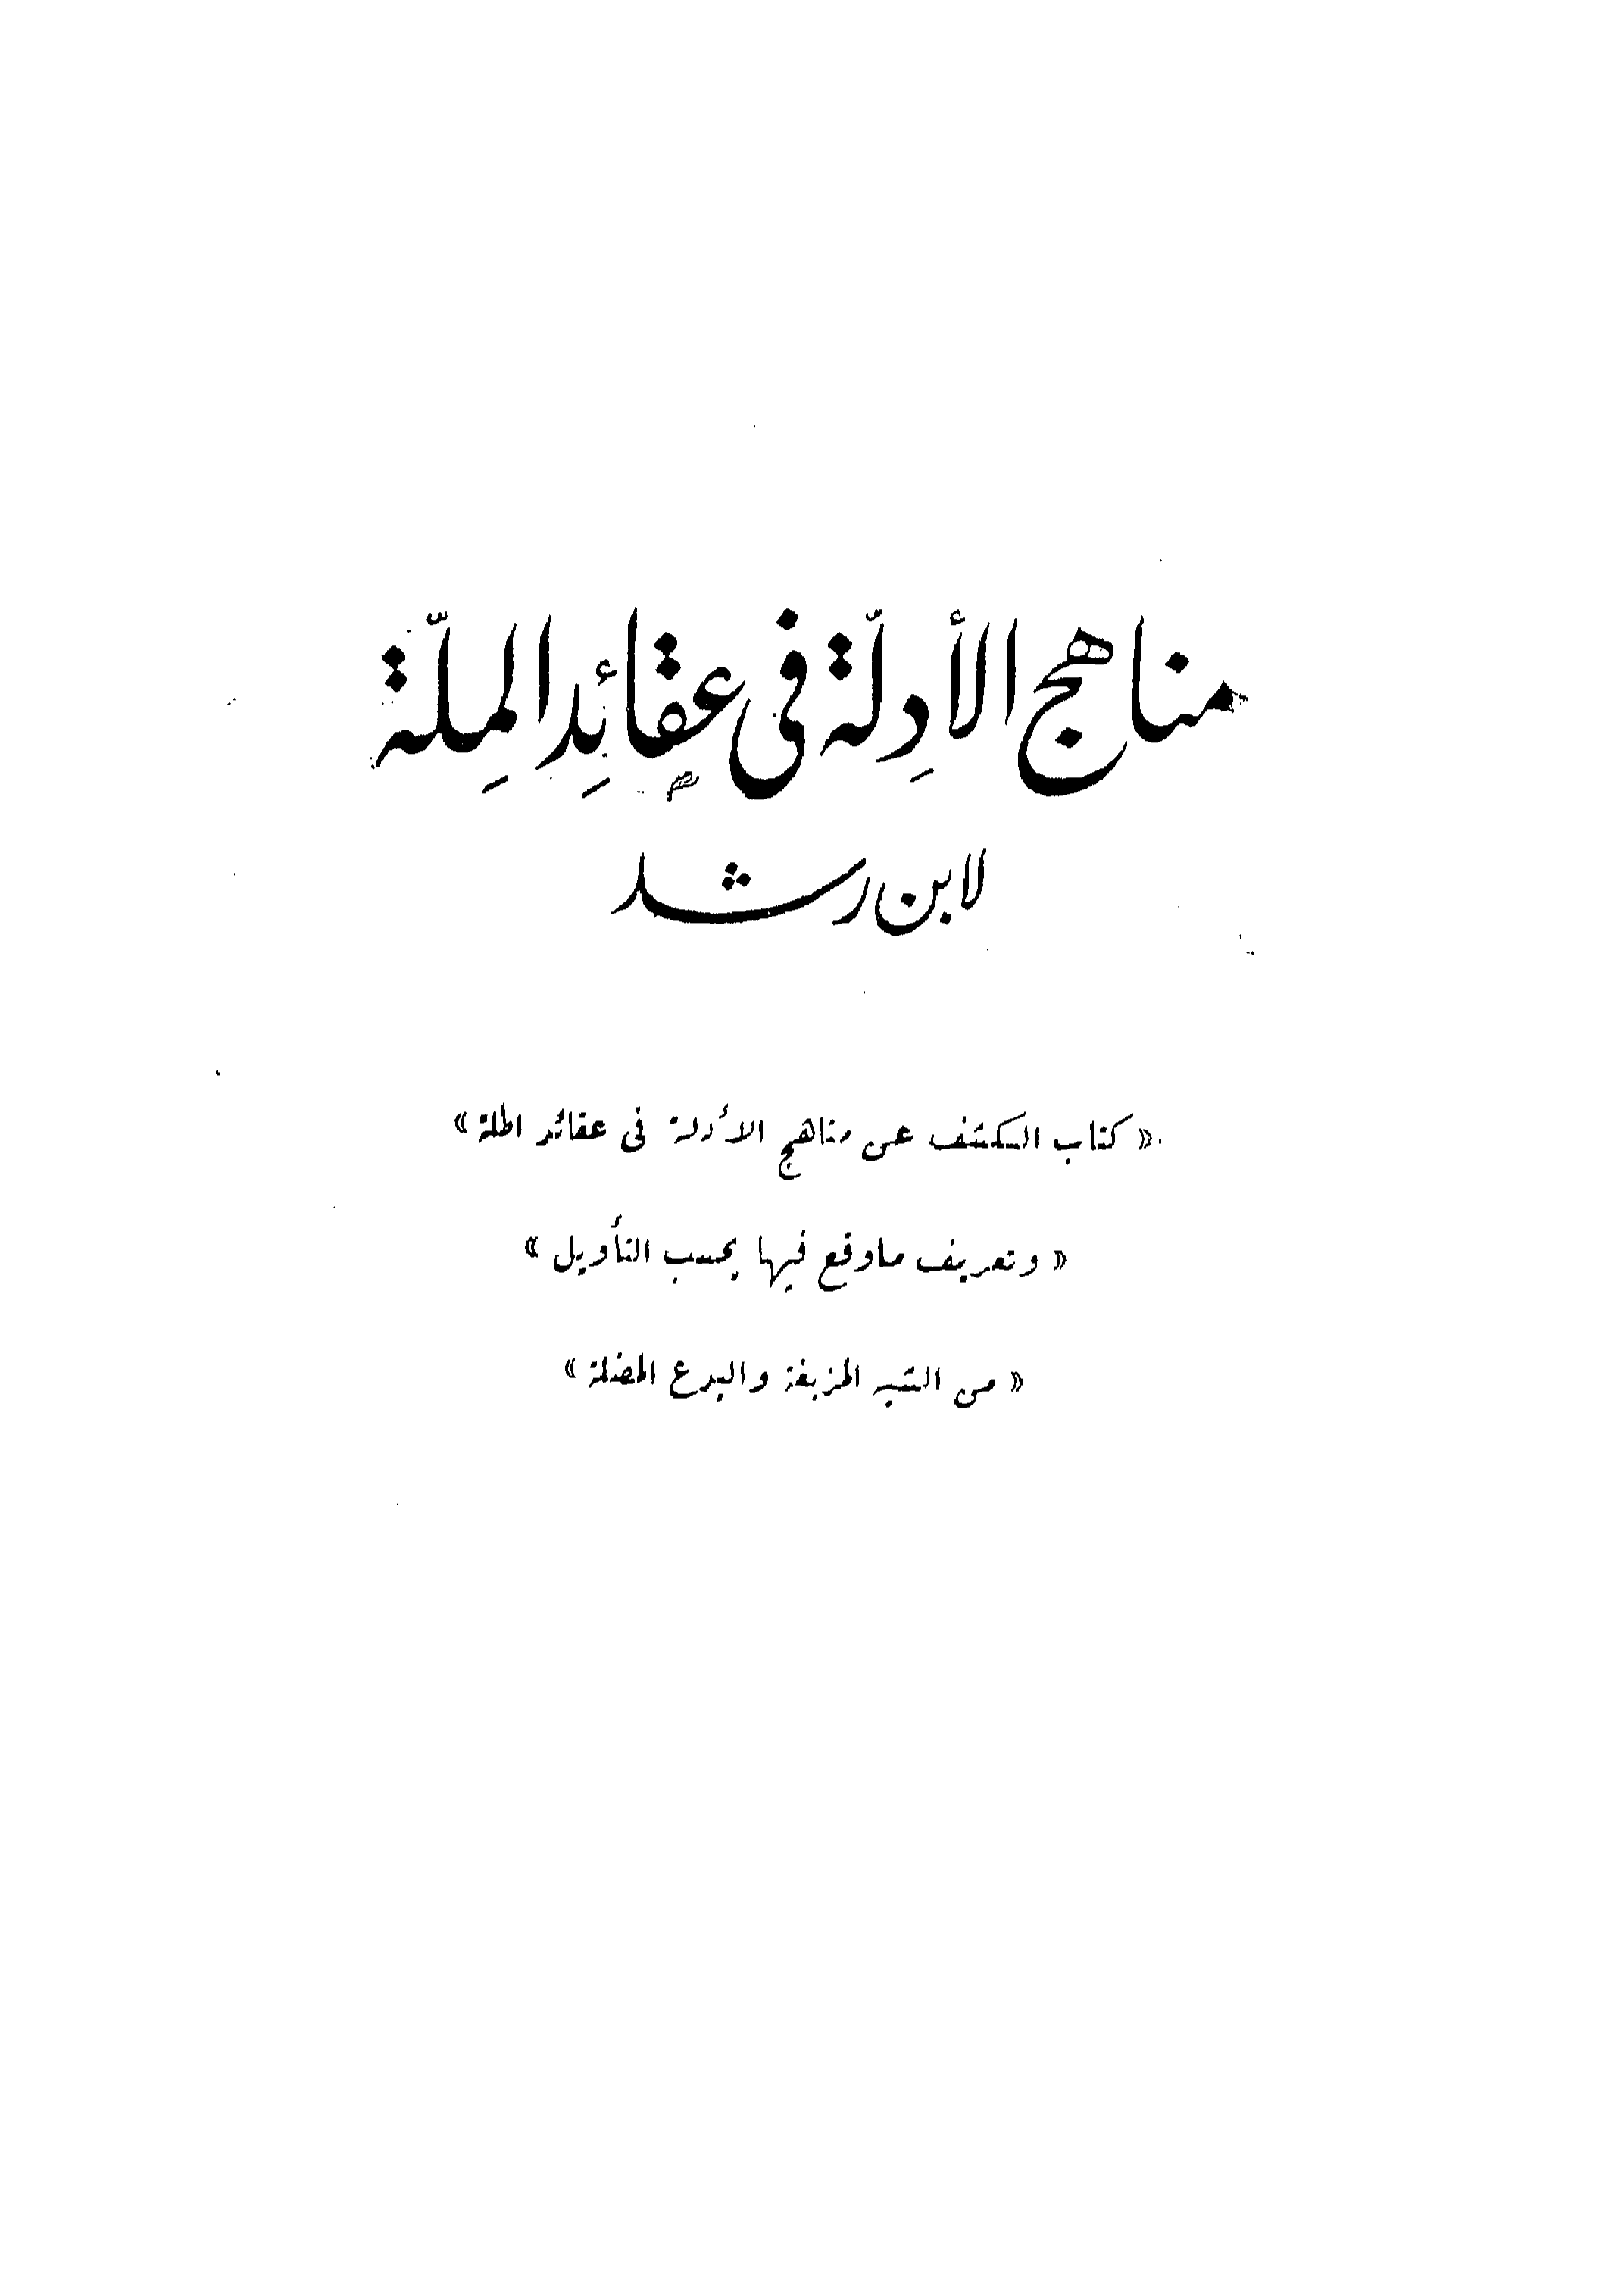 مناهج الأدِلّة فى عقائِد المِلّة
لابن رشد
« كتاب الكشف عن مناهج الأدلة فى عقائد الملة »
« وتعريف ماوقع فيها بحسب التأويل »
« من الشبه المزيفة والبدع المضلة »